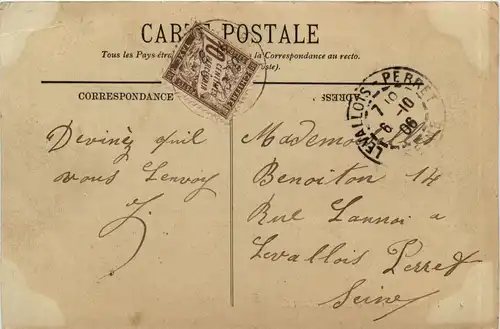 CARTE POSTALE
Tous les Pays étra la Correspondance au recto.
CORRESPONDANCE
ADRES
10 CENTIMES
A PERCEVOIR
LEVALLOIS-PERRET
7 10
6-10
06
Devinez qu'il
vous l'envoy
J.
Mademoiselle
Benoiton 14
Rue Lannoi a
Levallois Perret
Seine